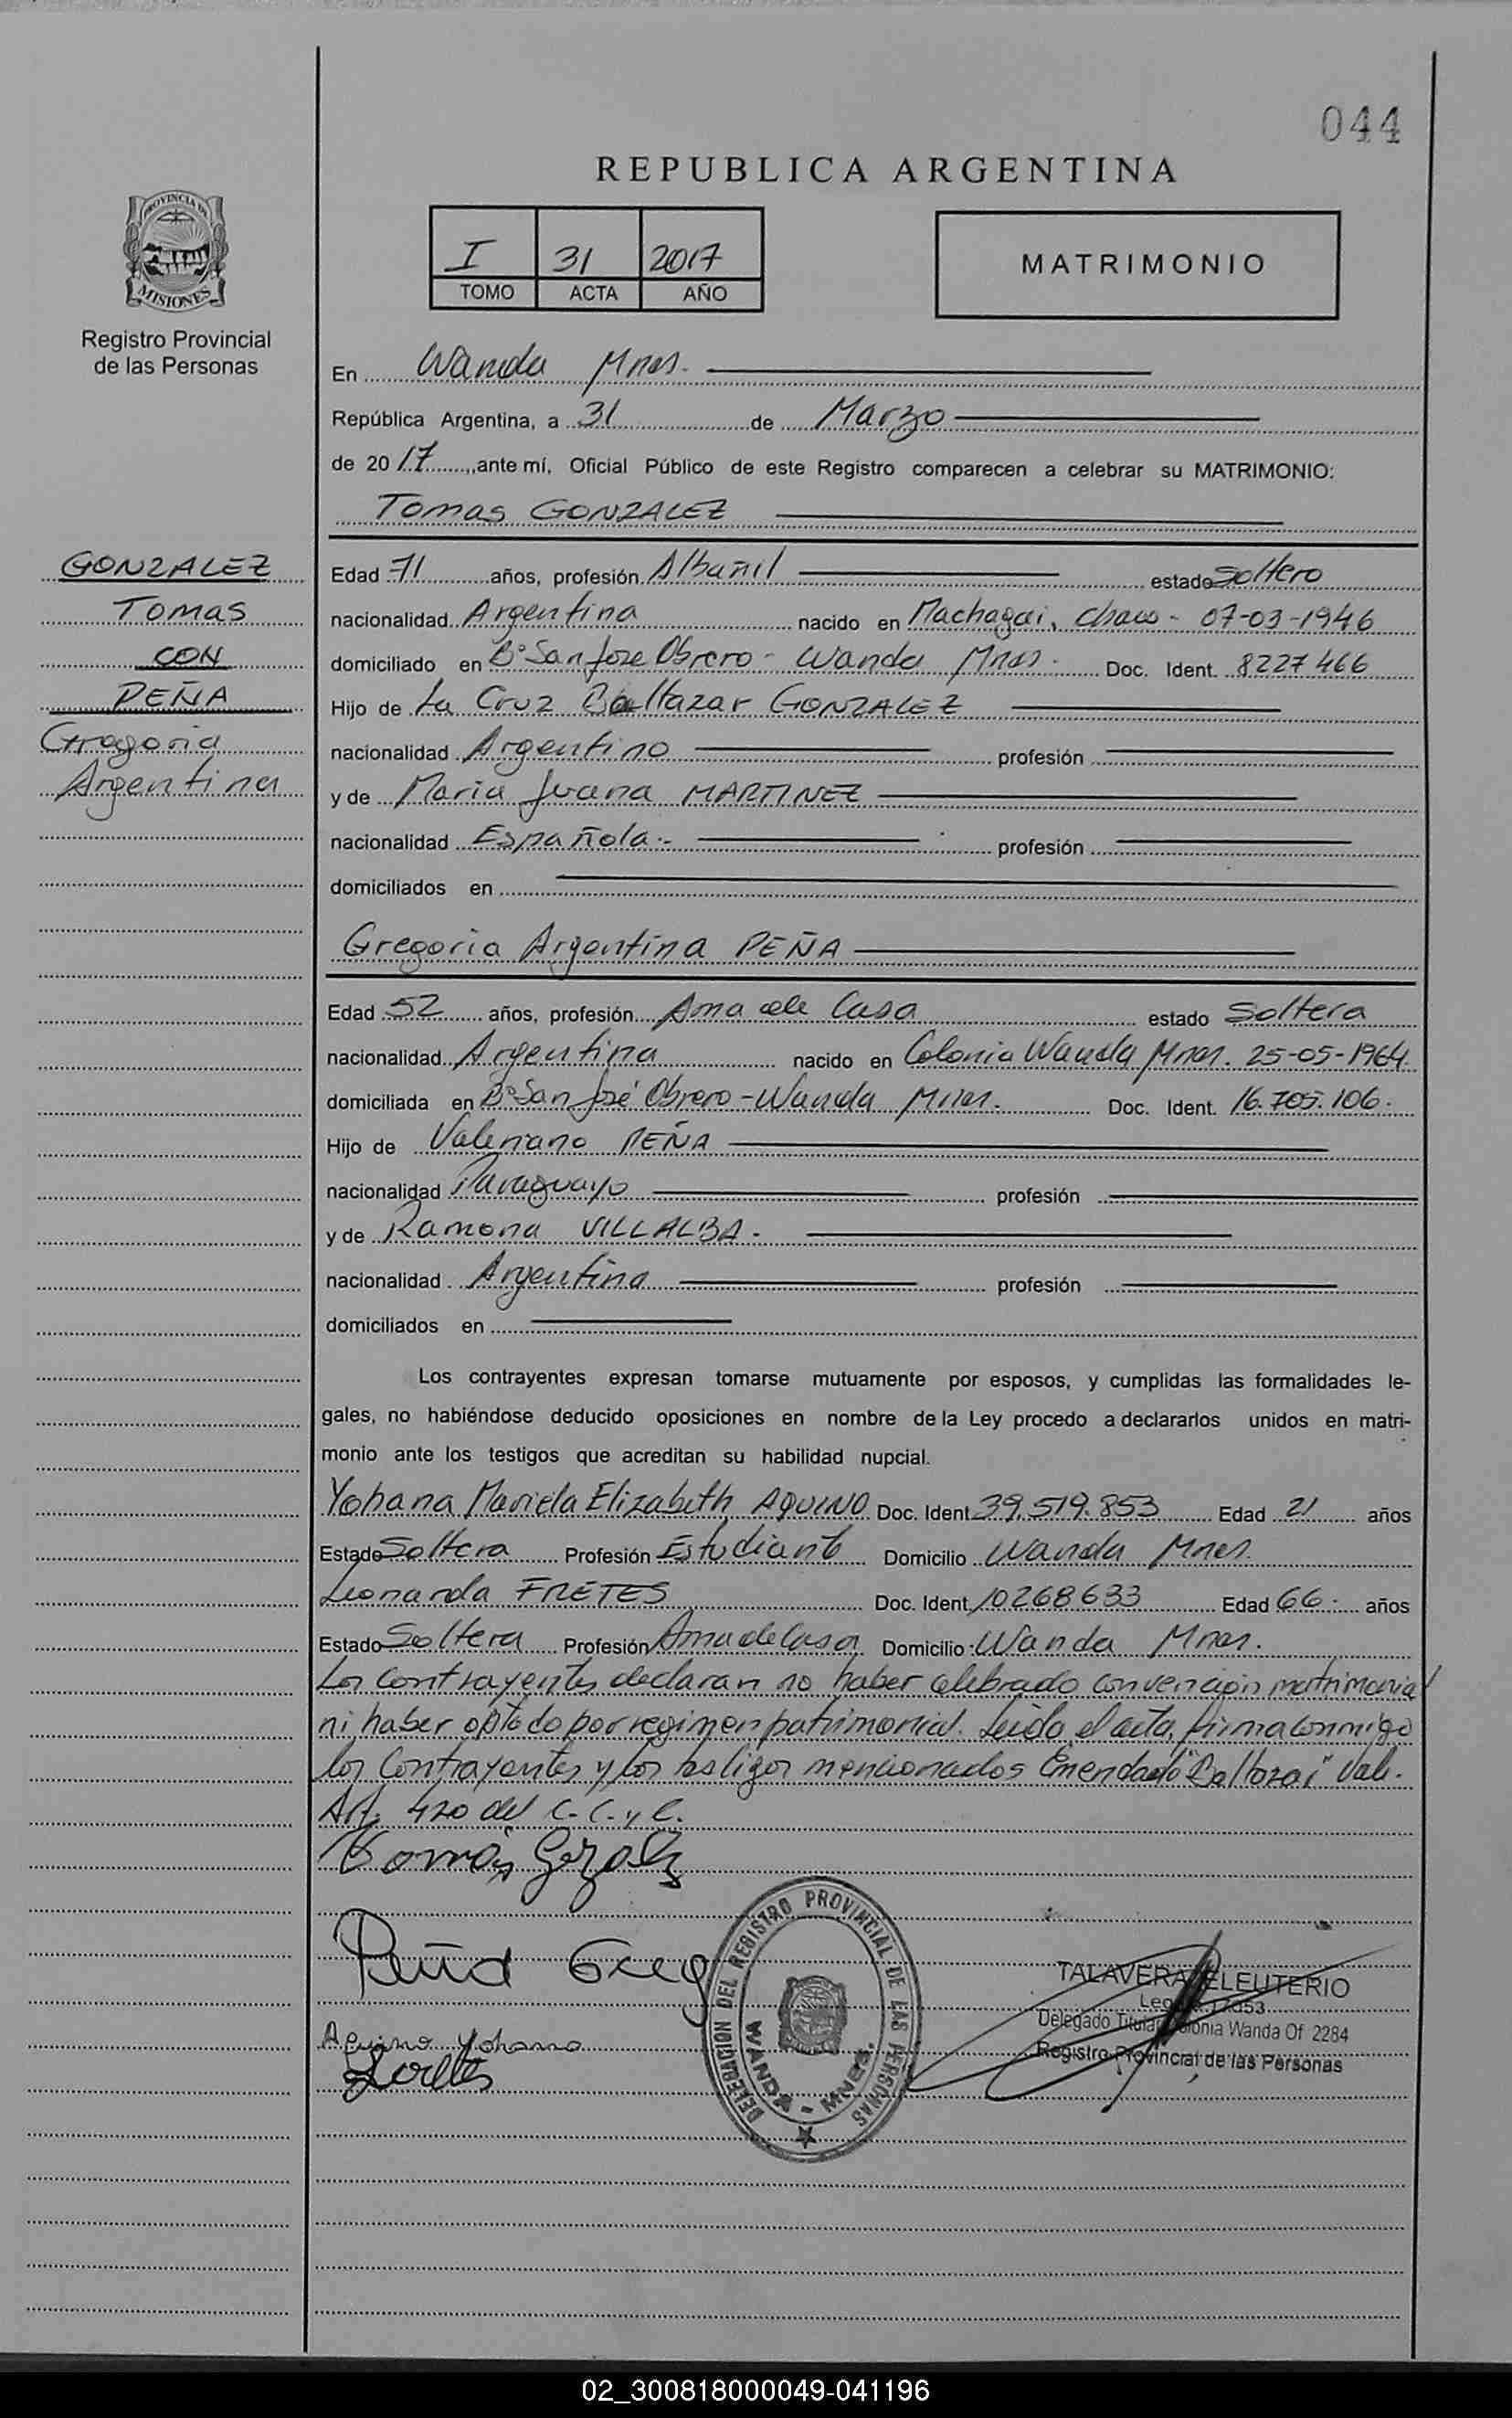 044
REPUBLICA ARGENTINA
PROVINCIA DE
MISIONES
Registro Provincial
de las Personas
I 31 2017
TOMO ACTA AÑO
MATRIMONIO
En Wanda Mnes.
República Argentina, a 31 de Marzo
de 2017, ante mí, Oficial Público de este Registro comparecen a celebrar su MATRIMONIO:
Tomas GONZALEZ
GONZALEZ
Tomas
CON
PEÑA
Gregoria
Argentina
Edad 71 años, profesión Albañil estado Soltero
nacionalidad Argentina nacido en Machagai, Chaco - 07-03-1946
domiciliado en B° San Jose Obrero - Wanda Mnes. Doc. Ident. 8227466
Hijo de La Cruz Baltazar GONZALEZ
nacionalidad Argentino profesión
y de Maria Juana MARTINEZ
nacionalidad Española.- profesión
domiciliados en
Gregoria Argentina PEÑA
Edad 52 años, profesión Ama de Casa estado Soltera
nacionalidad Argentina nacido en Colonia Wanda Mnes. 25-05-1964.
domiciliada en B° San José Obrero - Wanda Mnes. Doc. Ident. 16.705.106.
Hijo de Valeriano PEÑA
nacionalidad Paraguayo profesión
y de Ramona VILLALBA.
nacionalidad Argentina profesión
domiciliados en
Los contrayentes expresan tomarse mutuamente por esposos, y cumplidas las formalidades le-
gales, no habiéndose deducido oposiciones en nombre de la Ley procedo a declararlos unidos en matri-
monio ante los testigos que acreditan su habilidad nupcial.
Yohana Mariela Elizabeth AQUINO Doc. Ident 39.519.853 Edad 21 años
Estado Soltera Profesión Estudiante Domicilio Wanda Mnes.
Leonarda FRETES Doc. Ident 10268633 Edad 66 años
Estado Soltera Profesión Ama de Casa Domicilio Wanda Mnes.
Los contrayentes declaran no haber celebrado convencion matrimonial
ni haber optado por regimen patrimonial. Leida el acta, firma conmigo
los Contrayentes y los testigos mencionados Emendado "Baltazar" Vale.
Art. 420 del C.C. y C.
Tomás
Peña Greg
Aquino Yohana
DELEGACION DEL REGISTRO PROVINCIAL DE LAS PERSONAS
WANDA - MNES.
TALAVERA ELEUTERIO
Delegado Titular Colonia Wanda Of. 2284
Registro Provincial de las Personas
02_300818000049-041196